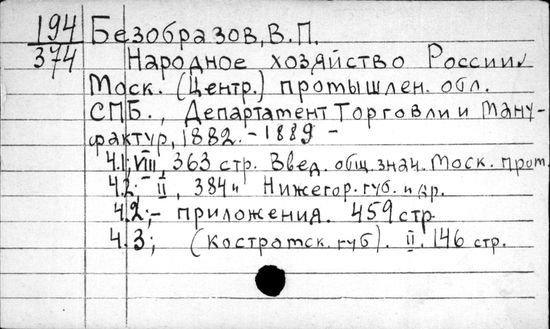 194 Безобразов, В.П.
374 Народное хозяйство России.
Моск. (Центр.) промышлен. обл.
СПБ., Департамент Торговли и Ману-
фактур, 1882. - 1889 -
ч.1, VIII, 363 стр. Введ. общ. знач. Моск. пром.
ч.2. - II, 384 " Нижегор. губ. и др.
ч.2; - приложения. 459 стр
ч.3; (Костромск. губ). II. 146 стр.